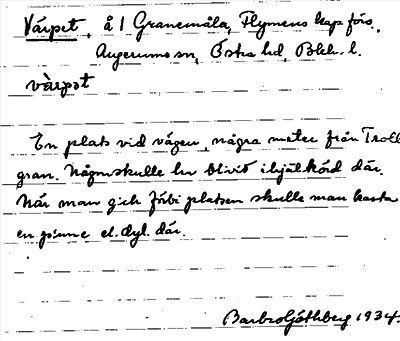 Värpet, å 1 Granemåla, Flymens kap förs.,
Augerums sn, Östra hd, Blek. l.
värpət
En plats vid vägen, några meter från Troll
gran. Någon skulle ha blivit ihjälkörd där.
När man gick förbi platsen skulle man kasta
en pinne el. dyl. där.
Barbro Göthberg 1934.